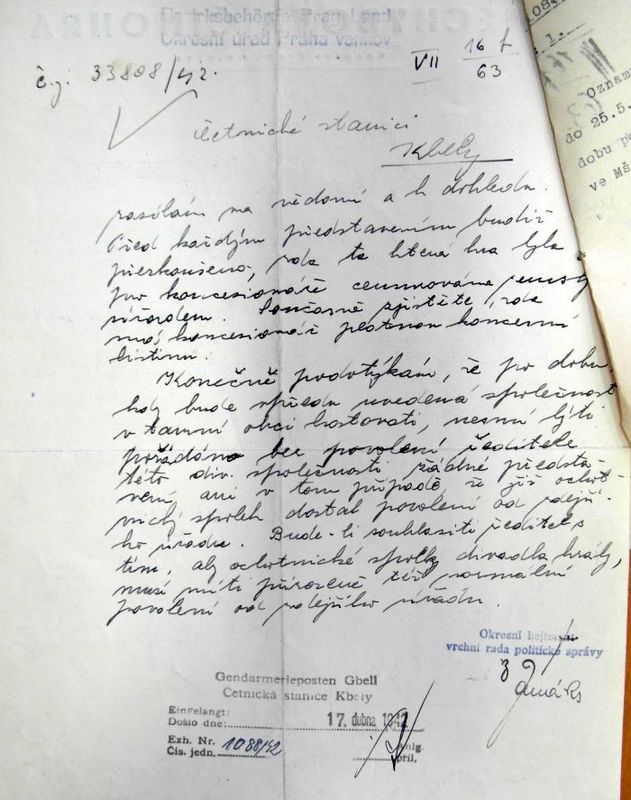 Bezirksbehörde Prag-Land
Okresní úřad Praha venkov
č.j. 33808/42.
VII 16/ 63
Četnické stanici
Kbely
zasílám na vědomí a k dohledu.
Před každým představením budiž
přezkoušeno, zda ta která hra byla
pro koncesionáře censurována zemský
úřadem. Současně zjistěte, zda
má koncesionář platnou koncesní
listinu.
Konečně podotýkám, že po dobu
kdy bude vpředu uvedená společnost
v tamní obci hostovati, nesmí býti
pořádáno bez povolení ředitele
této div. společnosti žádné předsta-
vení ani v tom případě že již ochot-
nický spolek dostal povolení od zdejší-
ho úřadu. Bude-li souhlasiti ředitel s
tím, aby ochotnické spolky divadla hrály,
musí míti přirozeně též normální
povolení od zdejšího úřadu.
Okresní hejtman
vrchní rada politické správy
Gendarmerieposten Gbell
Četnická stanice Kbely
Eingelangt:
Došlo dne: 17. dubna 1942
Exh. Nr. 1088/42
Čís. jedn. příl.
Oznam
do 25.5.
dobu p
ve Mš